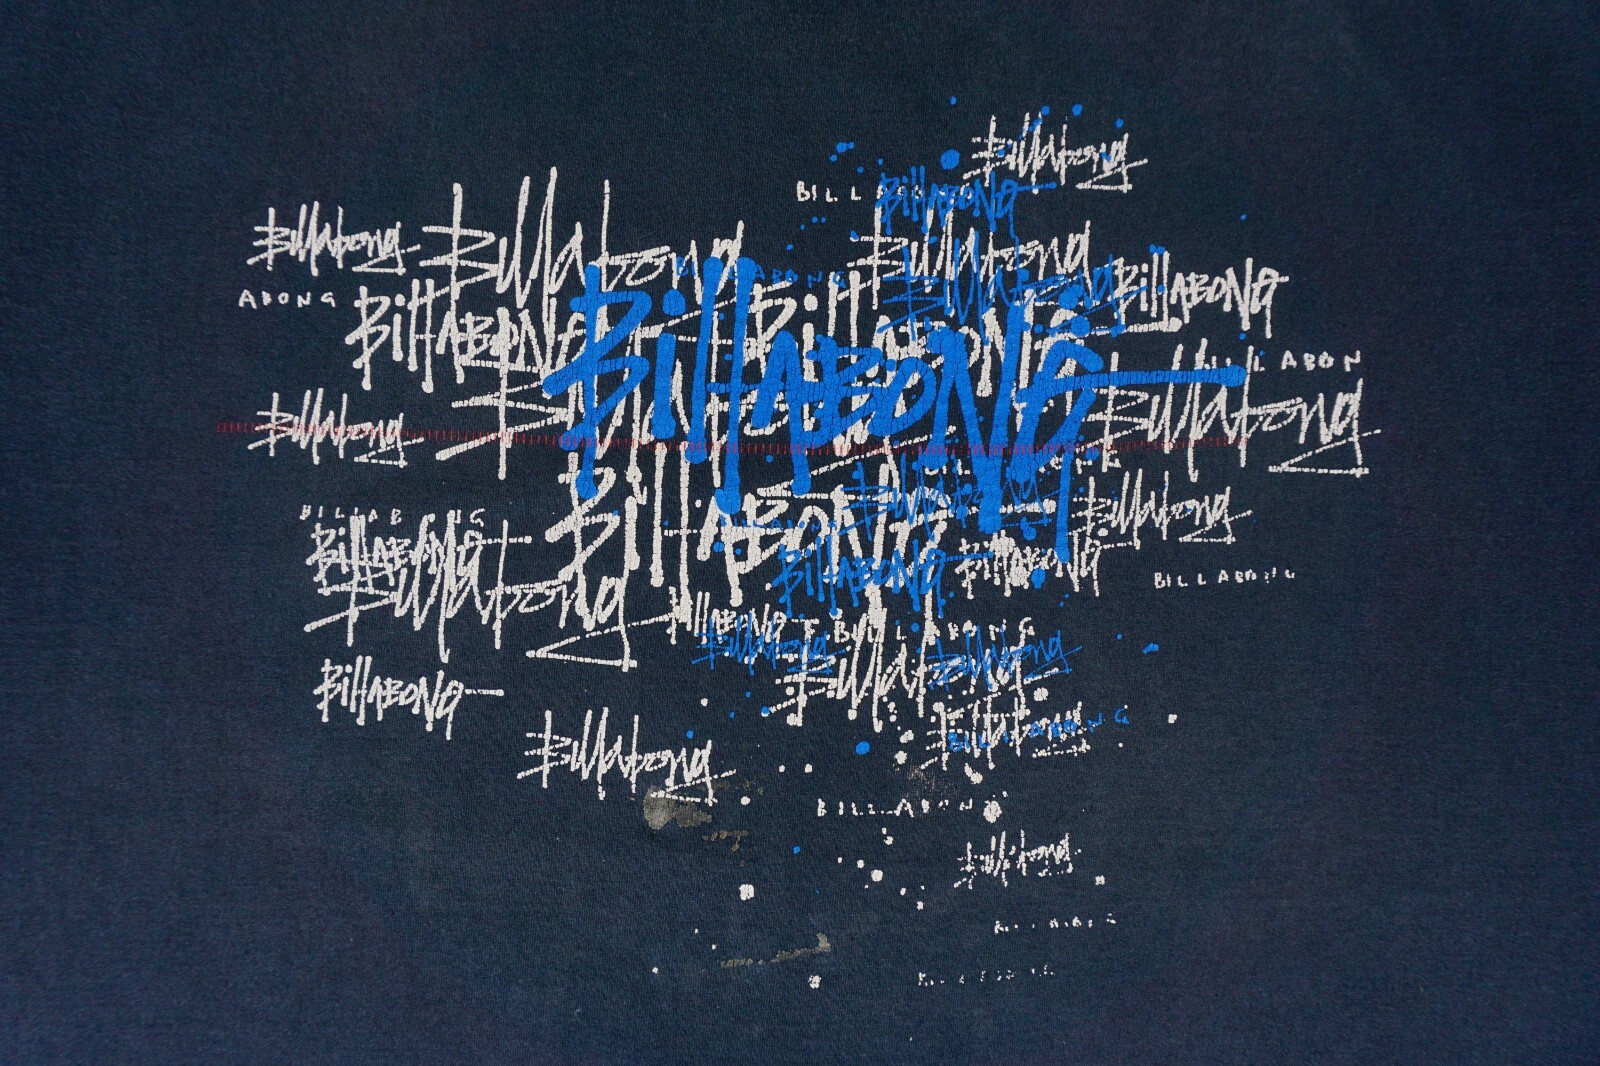 Billabong
BILL
BILLABONG
Billabong
Billabong
Billabong
Billabong
ABONG
BILLABONG
BILLABONG
BILLABONG
LABON
BILLABONG
Billabong
Billabong
BILLAB NG
Billabong
BILLABONG
BILLABONG
BILLABONG
BILLABONG
BILLABONG
Billabong
BILLABONG
BILLABONG
Billabong
Billabong
Billabong
BILLABONG
Billabong
BILLABONG
BILLABONG
Billabong